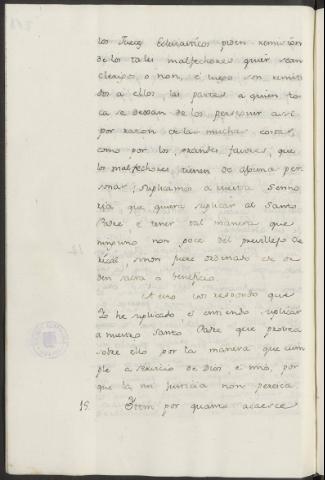 los Jueces Eclesiasticos piden remision
de los tales malfechores quier sean
clerigos o non, e luego son remiti
dos a ellos, las partes a quien to
ca se dexan de los perseguir asi
por razon de la muchas costas,
como por los grandes favores, que
los malfechores tienen de algunas per
sonas; suplicamos a vuestra Senno
ria que quiera suplicar al Santo
Padre, e tener tal manera que
ninguno non goce del previllejo de
si non fuere ordenado de or
den sacra, o beneficio.
A esto vos respondo que
Yo he suplicado e entiendo suplicar
a nuestro Santo Padre que provea
sobre ello por la manera que cum
ple a servicio de Dios, e mio, por
que la mi justicia non peresca.
15. Item por quanto acaesce